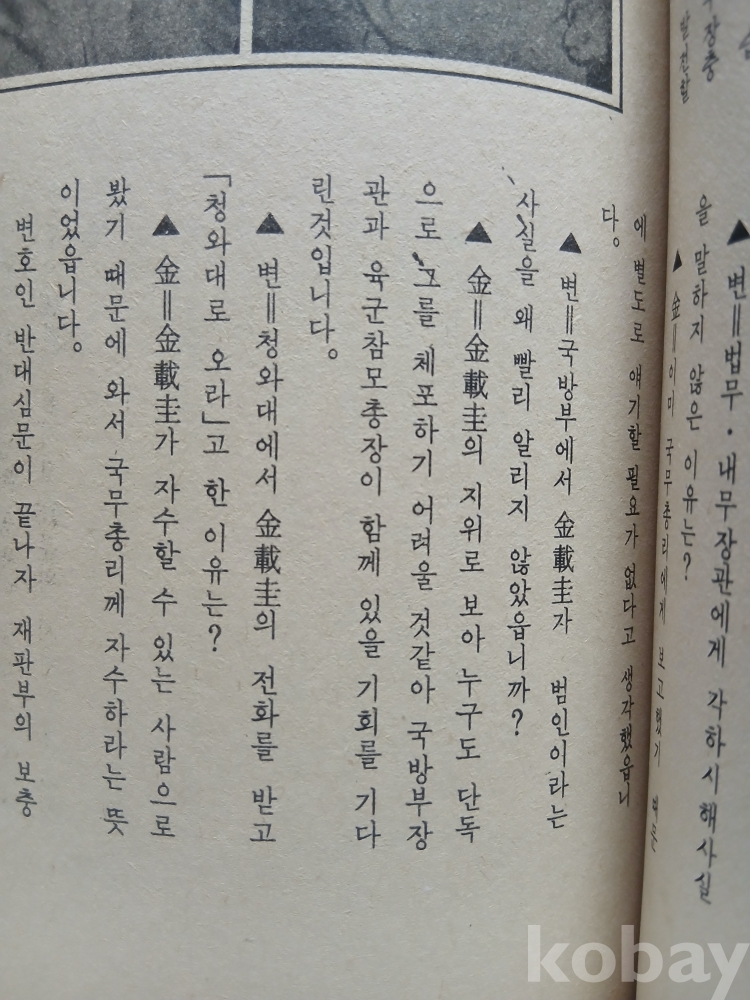 ▲ 변=법무・내무장관에게 각하시해사실
을 말하지 않은 이유는?
▲ 金=이미 국무총리에게 보고했기 때문
에 별도로 얘기할 필요가 없다고 생각했읍니
다。
▲ 변=국방부에서 金載圭가 범인이라는
사실을 왜 빨리 알리지 않았읍니까?
▲ 金=金載圭의 지위로 보아 누구도 단독
으로 그를 체포하기 어려울 것같아 국방부장
관과 육군참모총장이 함께 있을 기회를 기다
린것입니다。
▲ 변=청와대에서 金載圭의 전화를 받고
「청와대로 오라」고 한 이유는?
▲ 金=金載圭가 자수할 수 있는 사람으로
봤기 때문에 와서 국무총리께 자수하라는 뜻
이었읍니다。
변호인 반대심문이 끝나자 재판부의 보충
kobay